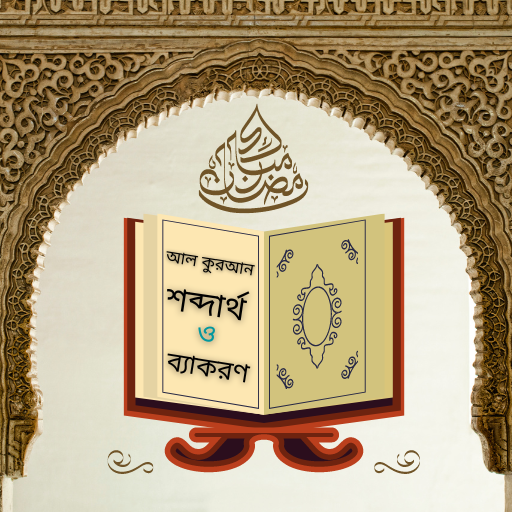 رمضان مبارك
আল কুরআন
শব্দার্থ
ও
ব্যাকরণ